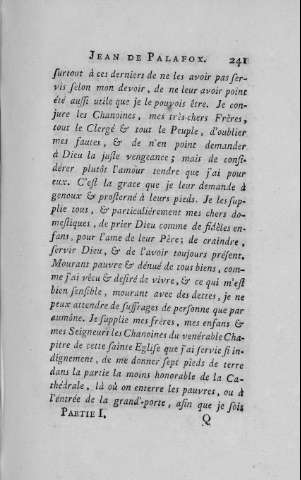 JEAN DE PALAFOX. 241
surtout à ces derniers de ne les avoir pas ser-
vis selon mon devoir, de ne leur avoir point
été aussi utile que je le pouvois être. Je con-
jure les Chanoines, mes très-chers Frères,
tout le Clergé & tout le Peuple, d'oublier
mes fautes, & de n'en point demander
à Dieu la juste vengeance; mais de consi-
dérer plutôt l'amour tendre que j'ai pour
eux. C'est la grace que je leur demande à
genoux & prosterné à leurs pieds. Je les sup-
plie tous, & particuliérement mes chers do-
mestiques, de prier Dieu comme de fidèles en-
fans, pour l'ame de leur Père; de craindre,
servir Dieu, & de l'avoir toujours présent.
Mourans pauvre & dénué de tous biens, com-
me j'ai vécu & desiré de vivre, & ce qui m'est
bien sensible, mourant avec des dettes, je ne
peux attendre de suffrages de personne que par
aumône. Je supplie mes frères, mes enfans &
mes Seigneurs les Chanoines du vénérable Cha-
pitre de cette sainte Eglise que j'ai servie si in-
dignement, de me donner sept pieds de terre
dans la partie la moins honorable de la Ca-
thédrale, là où on enterre les pauvres, ou à
l'entrée de la grand-porte, afin que je sois
PARTIE I. Q